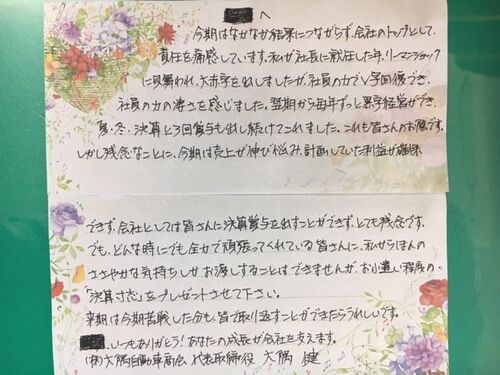 へ
今期はなかなか結果につながらず、会社のトップとして、
責任を痛感しています。私が社長に就任した年、リーマンショック
に見舞われ、大赤字を出しましたが、社員の力でV字回復でき、
社員の力の凄さを感じました。翌期から毎年ずっと黒字経営ができ、
夏・冬・決算と3回賞与も出し続けてこれました。これも皆さんのお陰です。
しかし残念なことに、今期は売上が伸び悩み、計画していた利益が確保
できず、会社としては皆さんに決算賞与を出すことができず、とても残念です。
でも、どんな時にでも全力で頑張ってくれている皆さんに、私からほんの
ささやかな気持ちしかお渡しすることはできませんが、お小遣い程度の
「決算寸志」をプレゼントさせて下さい。
来期は今期苦戦した分も、皆で取り返すことができたらうれしいです。
、いつもありがとう!あなたの成長が会社を支えます。
(株)大隅自動車商会 代表取締役 大隅 健